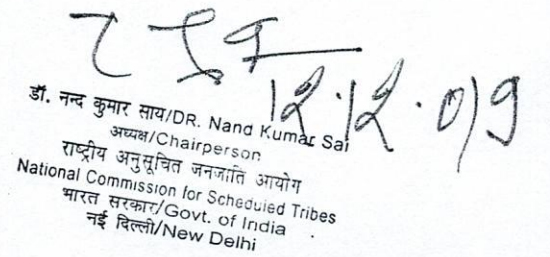 12.12.019
डॉ. नन्द कुमार साय/DR. Nand Kumar Sai
अध्यक्ष/Chairperson
राष्ट्रीय अनुसूचित जनजाति आयोग
National Commission for Scheduied Tribes
भारत सरकार/Govt. of India
नई दिल्ली/New Delhi